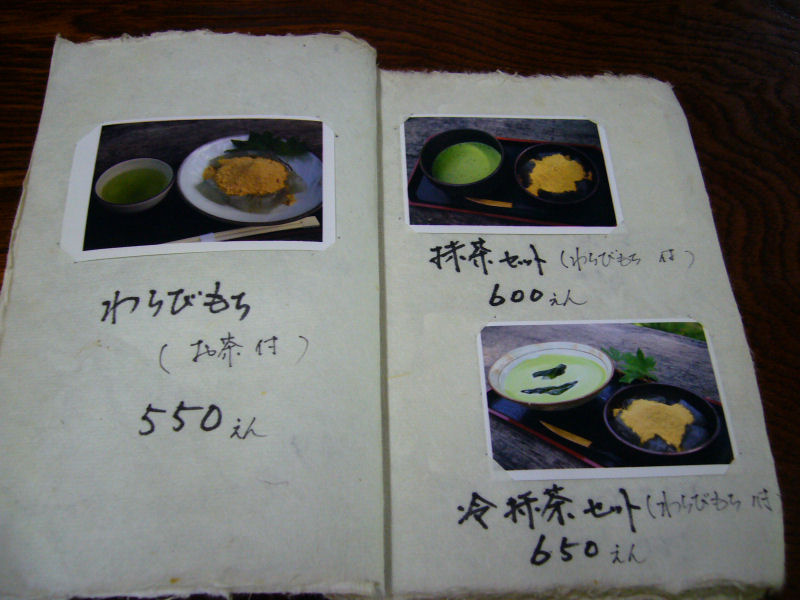 わらびもち
(お茶付)
550えん
抹茶セット(わらびもち付)
600えん
冷抹茶セット(わらびもち付)
650えん